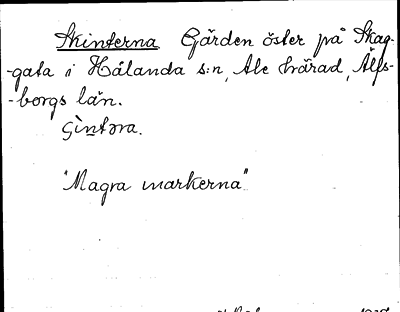 Skinterna Gården öster på Skag-
-gata i Hålanda s:n, Ale härad, Älfs-
-borgs län.
Çìntəra.
"Magra markerna"